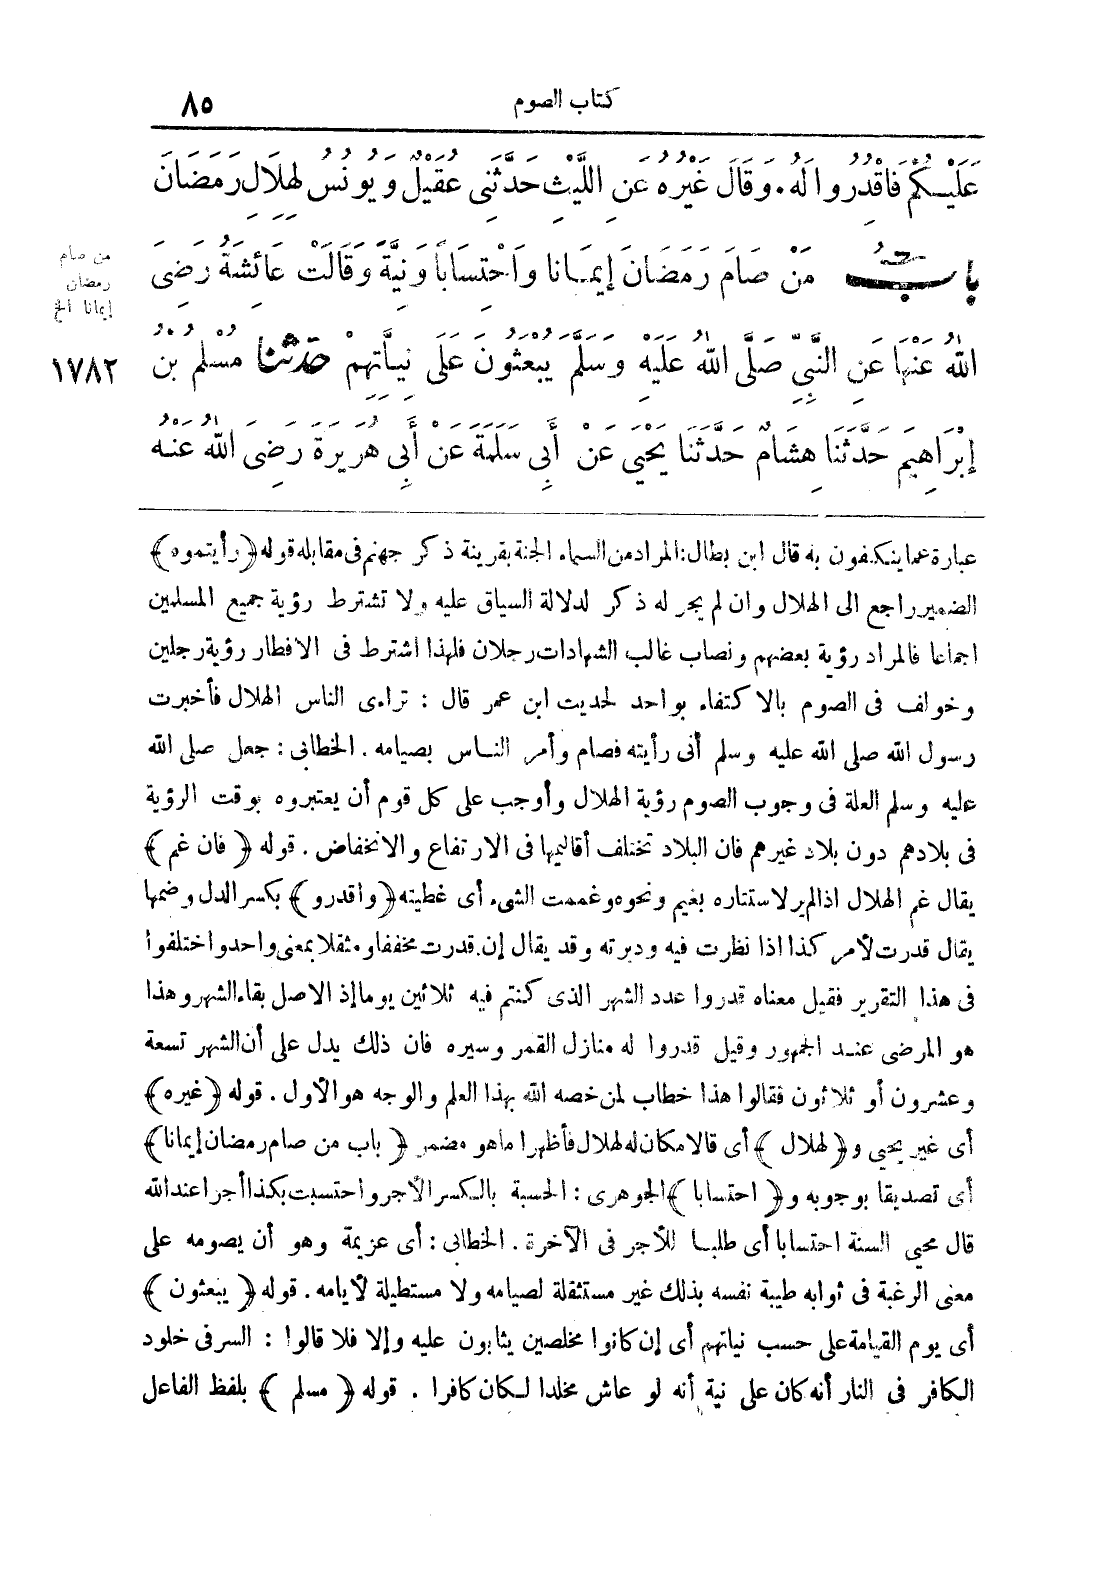 ٨٥
كتاب الصوم
عَلَيْكُمْ فَاقْدُرُوا لَهُ. وَقَالَ غَيْرُهُ عَنِ اللَّيْثِ حَدَّثَنِي عُقَيْلٌ وَيُونُسُ لِهِلَالِ رَمَضَانَ
بابُ مَنْ صَامَ رَمَضَانَ إِيمَانًا وَاحْتِسَابًا وَنِيَّةً وَقَالَتْ عَائِشَةُ رَضِيَ
من صام
رمضان
إيمانا الخ
اللهُ عَنْهَا عَنِ النَّبِيِّ صَلَّى اللهُ عَلَيْهِ وَسَلَّمَ يُبْعَثُونَ عَلَى نِيَّاتِهِمْ حَدَّثَنَا مُسْلِمُ بْنُ
١٧٨٢
إِبْرَاهِيمَ حَدَّثَنَا هِشَامٌ حَدَّثَنَا يَحْيَى عَنْ أَبِي سَلَمَةَ عَنْ أَبِي هُرَيْرَةَ رَضِيَ اللهُ عَنْهُ
عبارة عما ينكفون به قال ابن بطال: المراد من السماء الجنة بقرينة ذكر جهنم فى مقابله قوله ﴿رأيتموه﴾
الضمير راجع الى الهلال وان لم يجر له ذكر لدلالة السياق عليه ولا تشترط رؤية جميع المسلمين
اجماعا فالمراد رؤية بعضهم ونصاب غالب الشهادات رجلان فلهذا اشترط فى الافطار رؤية رجلين
وخولف فى الصوم بالاكتفاء بواحد لحديث ابن عمر قال : تراءى الناس الهلال فأخبرت
رسول الله صلى الله عليه وسلم أنى رأيته فصام وأمر الناس بصيامه. الخطابى : جعل صلى الله
عليه وسلم العلة فى وجوب الصوم رؤية الهلال وأوجب على كل قوم أن يعتبروه بوقت الرؤية
فى بلادهم دون بلاد غيرهم فان البلاد تختلف أقاليمها فى الارتفاع والانخفاض. قوله ﴿فان غم﴾
يقال غم الهلال اذا لم ير لاستتاره بغيم ونحوه وغممت الشىء أى غطيته ﴿واقدرو﴾ بكسر الدل وضمها
يقال قدرت لأمر كذا اذا نظرت فيه ودبرته وقد يقال إن قدرت مخففا ومثقلا بمعنى واحد واختلفوا
فى هذا التقرير فقيل معناه قدروا عدد الشهر الذى كنتم فيه ثلاثين يوما إذ الاصل بقاء الشهر وهذا
هو المرضى عند الجمهور وقيل قدروا له منازل القمر وسيره فان ذلك يدل على أن الشهر تسعة
وعشرون أو ثلاثون فقالوا هذا خطاب لمن خصه الله بهذا العلم والوجه هو الأول. قوله ﴿غيره﴾
أى غير يحيى و﴿لهلال﴾ أى قالا مكان له لهلال فأظهرا ما هو مضمر ﴿باب من صام رمضان إيمانا﴾
أى تصديقا بوجوبه و﴿احتسابا﴾ الجوهرى : الحسبة بالكسر الأجر واحتسبت بكذا أجرا عند الله
قال محيى السنة احتسابا أى طلبا للأجر فى الآخرة. الخطابى : أى عزيمة وهو أن يصومه على
معنى الرغبة فى ثوابه طيبة نفسه بذلك غير مستثقلة لصيامه ولا مستطيلة لأيامه. قوله ﴿يبعثون﴾
أى يوم القيامة على حسب نياتهم أى إن كانوا مخلصين يثابون عليه وإلا فلا قالوا : السر فى خلود
الكافر فى النار أنه كان على نية أنه لو عاش مخلدا لكان كافرا. قوله ﴿مسلم﴾ بلفظ الفاعل